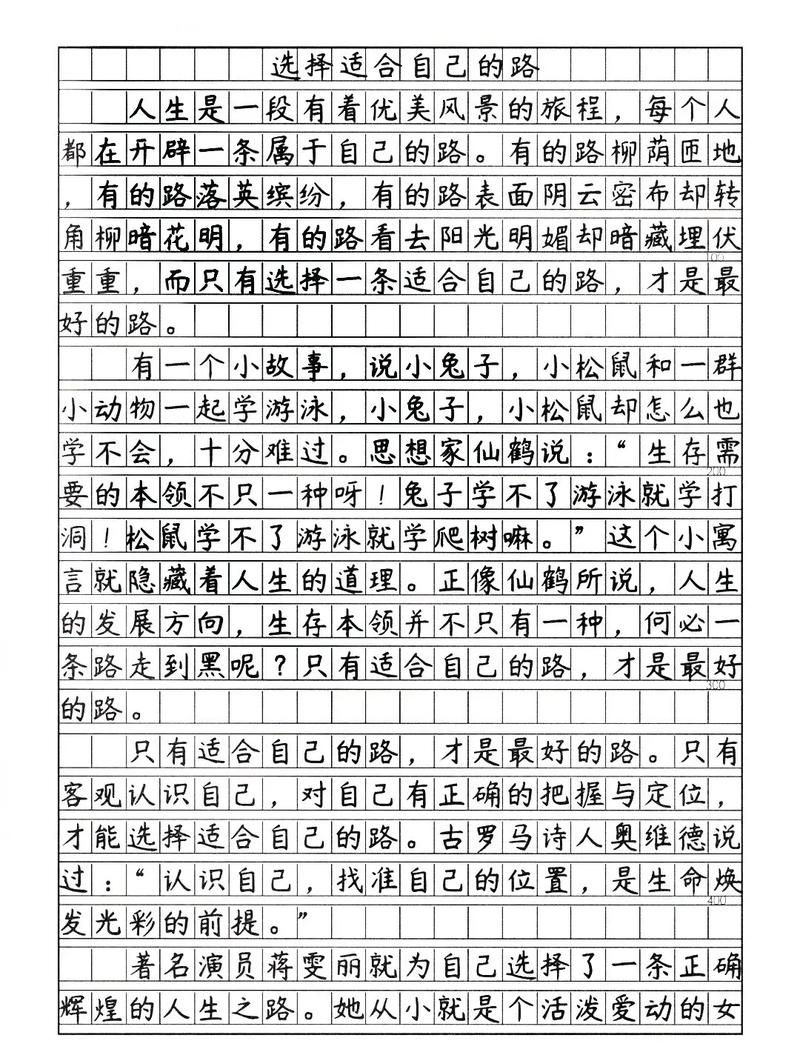 选择适合自己的路
人生是一段有着优美风景的旅程，每个人
都在开辟一条属于自己的路。有的路柳荫匝地
，有的路落英缤纷，有的路表面阴云密布却转
角柳暗花明，有的路看去阳光明媚却暗藏埋伏
100
重重，而只有选择一条适合自己的路，才是最
好的路。
有一个小故事，说小兔子，小松鼠和一群
小动物一起学游泳，小兔子，小松鼠却怎么也
学不会，十分难过。思想家仙鹤说：“生存需
200
要的本领不只一种呀！兔子学不了游泳就学打
洞！松鼠学不了游泳就学爬树嘛。”这个小寓
言就隐藏着人生的道理。正像仙鹤所说，人生
的发展方向，生存本领并不只有一种，何必一
条路走到黑呢？只有适合自己的路，才是最好
300
的路。
只有适合自己的路，才是最好的路。只有
客观认识自己，对自己有正确的把握与定位，
才能选择适合自己的路。古罗马诗人奥维德说
过：“认识自己，找准自己的位置，是生命焕
400
发光彩的前提。”
著名演员蒋雯丽就为自己选择了一条正确
辉煌的人生之路。她从小就是个活泼爱动的女